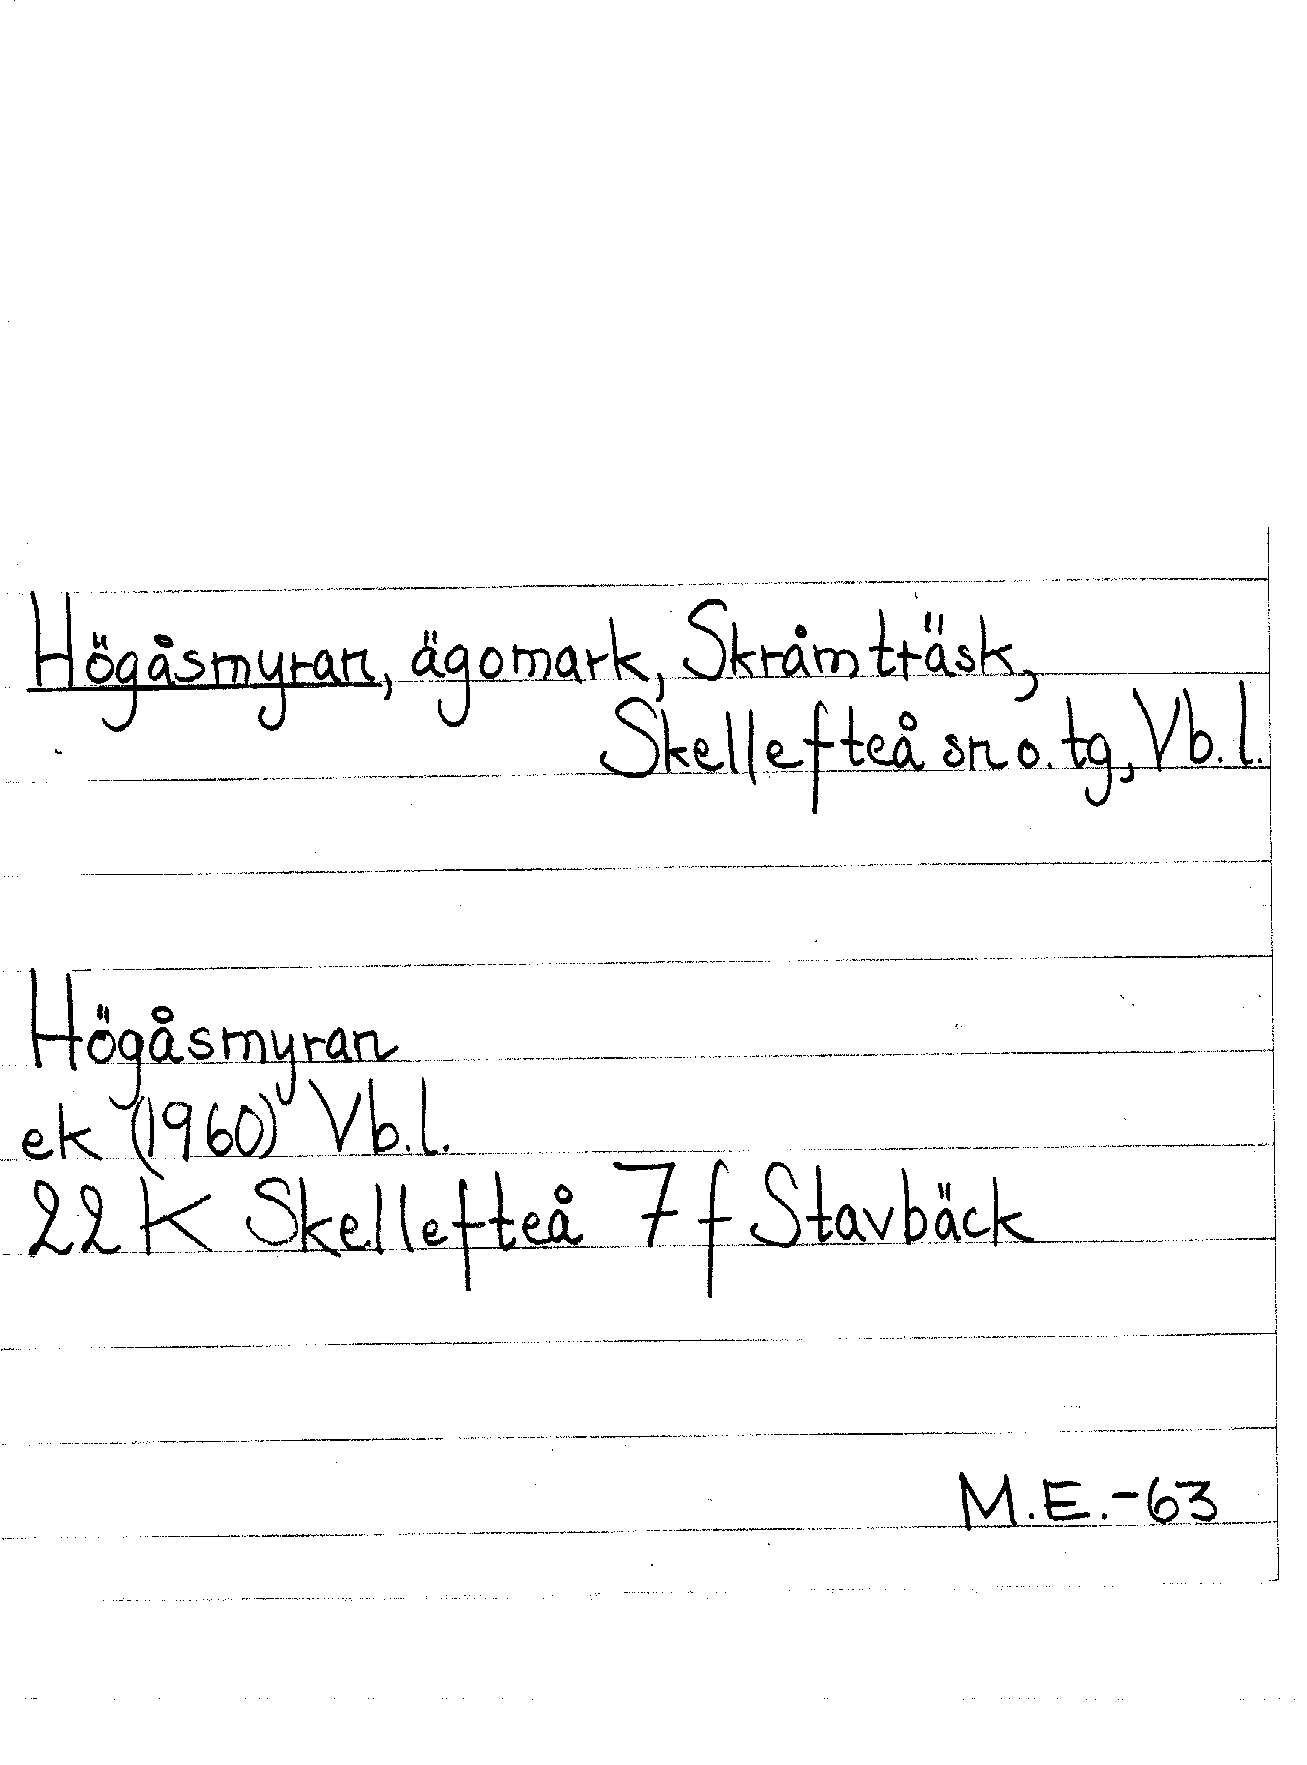 Högåsmyran, ägomark, Skråmträsk,
Skellefteå sn o. tg, Vb. l.
Högåsmyran
ek (1960) Vb. l.
22 K Skellefteå 7 f Stavbäck
M.E.-63